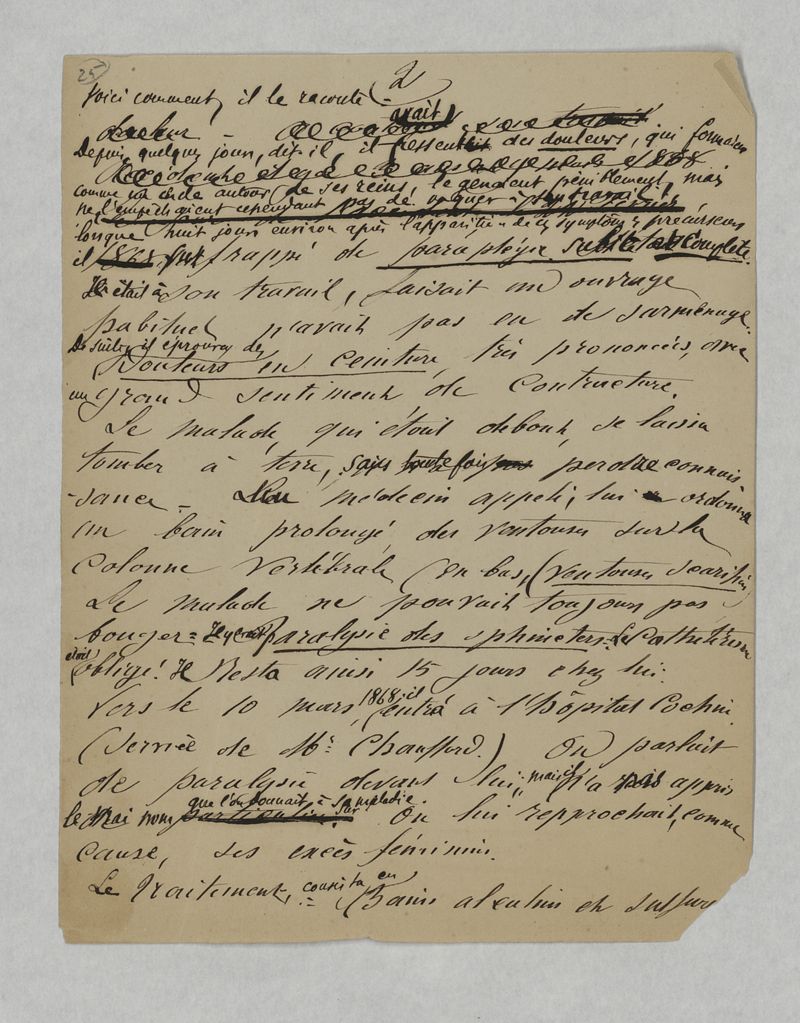 25
2
Voici comment, il le raconte =
avait
Depuis quelques jours, dit-il, il ressentait des douleurs, qui formaient
comme un cercle autour de ses reins, le gênaient péniblement, mais
ne l'empêchaient cependant pas de vaquer à
lorsque huit jours environ après l'apparition de ces symptômes précurseurs
il fut frappé de paraplégie subite et complète.
Il était à son travail, faisait un ouvrage
habituel n'avait pas eu de surmenage.
De suite il éprouva des
Douleurs en Ceinture, très prononcées, avec
un grand sentiment de Constricture.
Le malade, qui était debout, se laissa
tomber à terre, sans toutefois perdre connais
-sance - Un médecin appelé, lui ordonna
un bain prolongé, des ventouses sur la
Colonne Vertébrale (en bas, (ventouses scarifiées)
Le malade ne pouvait toujours pas
bouger = Il y avait paralysie des sphincters. Le Cathétérisme
était
obligé. Il Resta ainsi 15 jours chez lui.
Vers le 10 mars 1868, il entra à l'hôpital Cochin.
(Service de Mr. Chauffard.) On parlait
de paralysie devant lui, mais il n'a pas appris
le vrai nom que l'on donnait à sa maladie.
On lui reprochait, comme
cause, ses excès féminins.
Le Traitement, consista en
Bains alcalins et sulfur